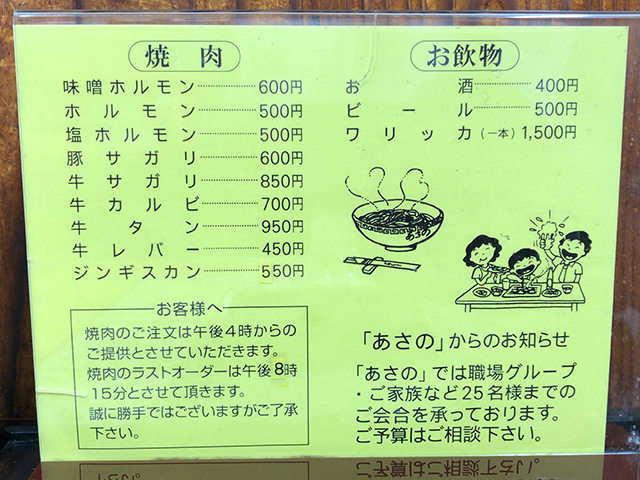 焼肉
味噌ホルモン 600円
ホルモン 500円
塩ホルモン 500円
豚サガリ 600円
牛サガリ 850円
牛カルビ 700円
牛タン 950円
牛レバー 450円
ジンギスカン 550円
お客様へ
焼肉のご注文は午後4時からの
ご提供とさせていただきます。
焼肉のラストオーダーは午後8時
15分とさせて頂きます。
誠に勝手ではございますがご了承
下さい。
お飲物
お酒 400円
ビール 500円
ワリッカ(一本) 1,500円
あさの
「あさの」からのお知らせ
「あさの」では職場グループ
・ご家族など25名様までの
ご会合を承っております。
ご予算はご相談下さい。